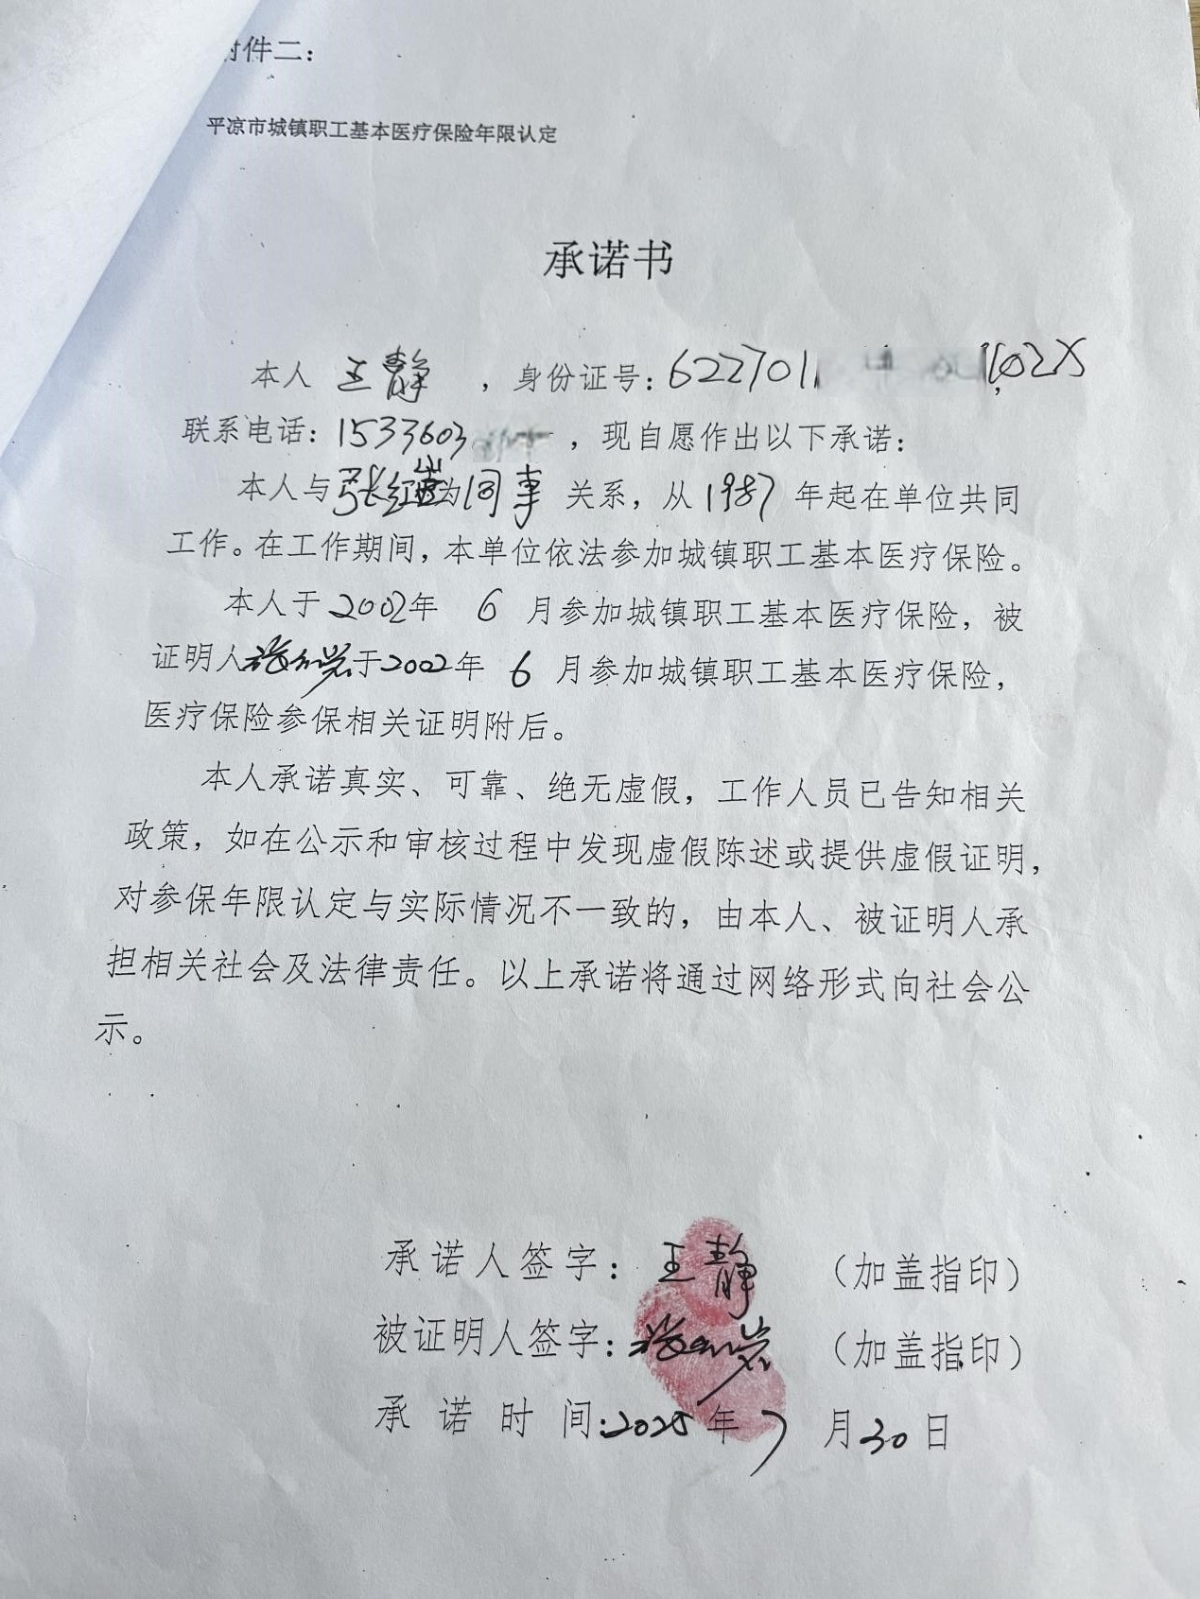 附件二：
平凉市城镇职工基本医疗保险年限认定
承诺书
本人 王静 ，身份证号：622701 102X
联系电话：1533603 ，现自愿作出以下承诺：
本人与张红 为同事 关系，从1987 年起在单位共同
工作。在工作期间，本单位依法参加城镇职工基本医疗保险。
本人于2002年 6 月参加城镇职工基本医疗保险，被
证明人张红 于2002年 6 月参加城镇职工基本医疗保险，
医疗保险参保相关证明附后。
本人承诺真实、可靠、绝无虚假，工作人员已告知相关
政策，如在公示和审核过程中发现虚假陈述或提供虚假证明，
对参保年限认定与实际情况不一致的，由本人、被证明人承
担相关社会及法律责任。以上承诺将通过网络形式向社会公
示。
承诺人签字：王静 （加盖指印）
被证明人签字：张红 （加盖指印）
承诺时间：2025年7月30日